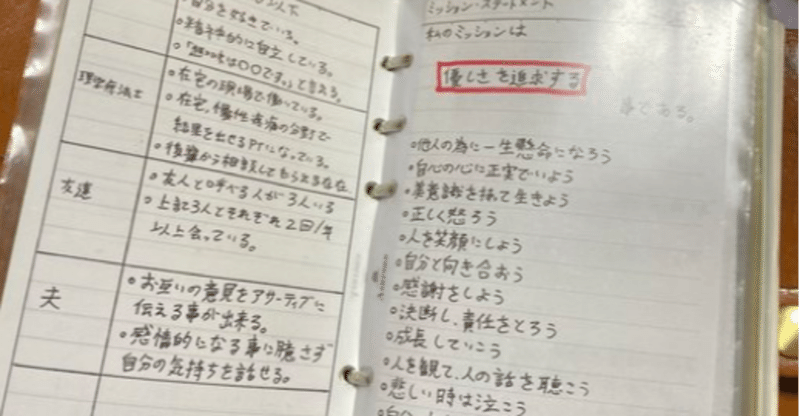 自分を好きでいる。
精神的に自立している。
「趣味は〇〇です。」と言える。
理学療法士
在宅の現場で働いている。
在宅、慢性疾患の分野で
結果を出せるPTになっている。
後輩から相談してもらえる存在
友達
友人と呼べる人が3人いる
上記3人とそれぞれ2回/年
以上会っている。
夫
お互いの意見をアサーティブに
伝える事が出来る。
感情的になる事に臆さず
自分の気持ちを話せる。
ミッション・ステートメント
私のミッションは
優しさを追求する
事である。
他人の為に一生懸命になろう
自分の心に正実でいよう
美意識を持って生きよう
正しく怒ろう
人を笑顔にしよう
自分と向き合おう
感謝をしよう
決断し、責任をとろう
成長していこう
人を観て、人の話を聴こう
悲しい時は泣こう